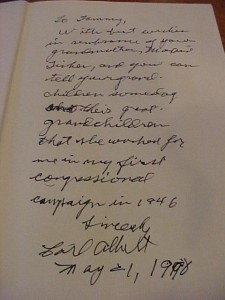 To Tammy,
With best wishes
in remembrance of your
grandmother,
Fisher, and you can
tell your grand-
children someday
this great-
grandchildren
that she worked for
me in my first
congressional
campaign in 1946
Sincerely
Carl Albert
May 21, 1998